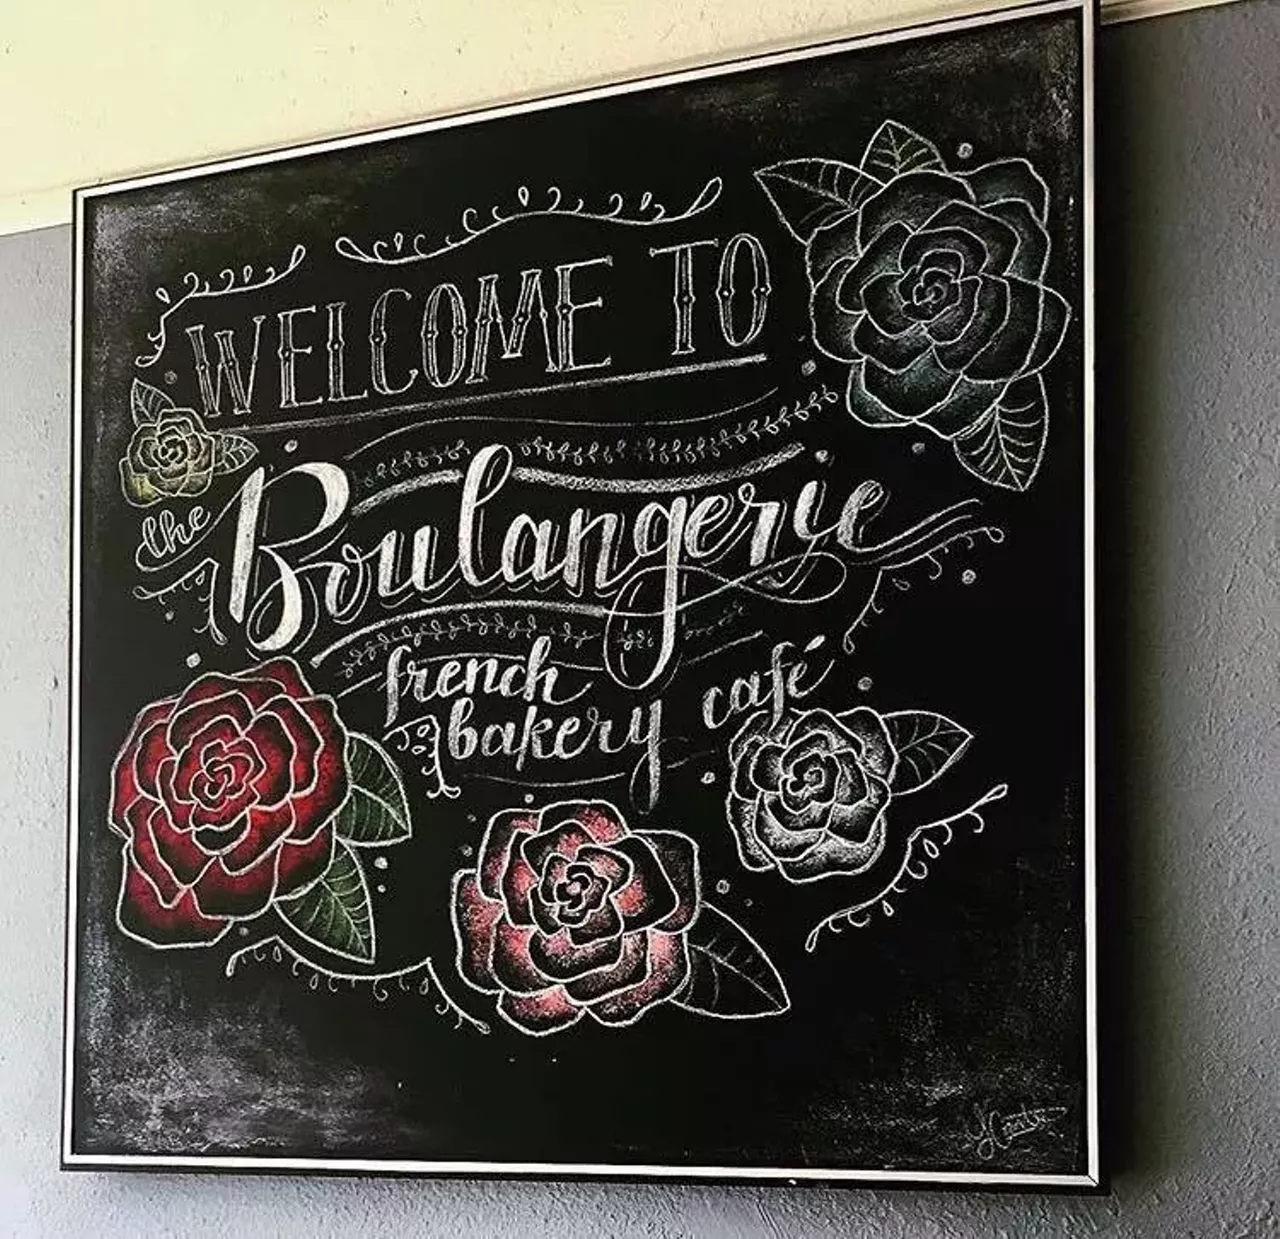 WELCOME TO
the Boulangerie
french
bakery café